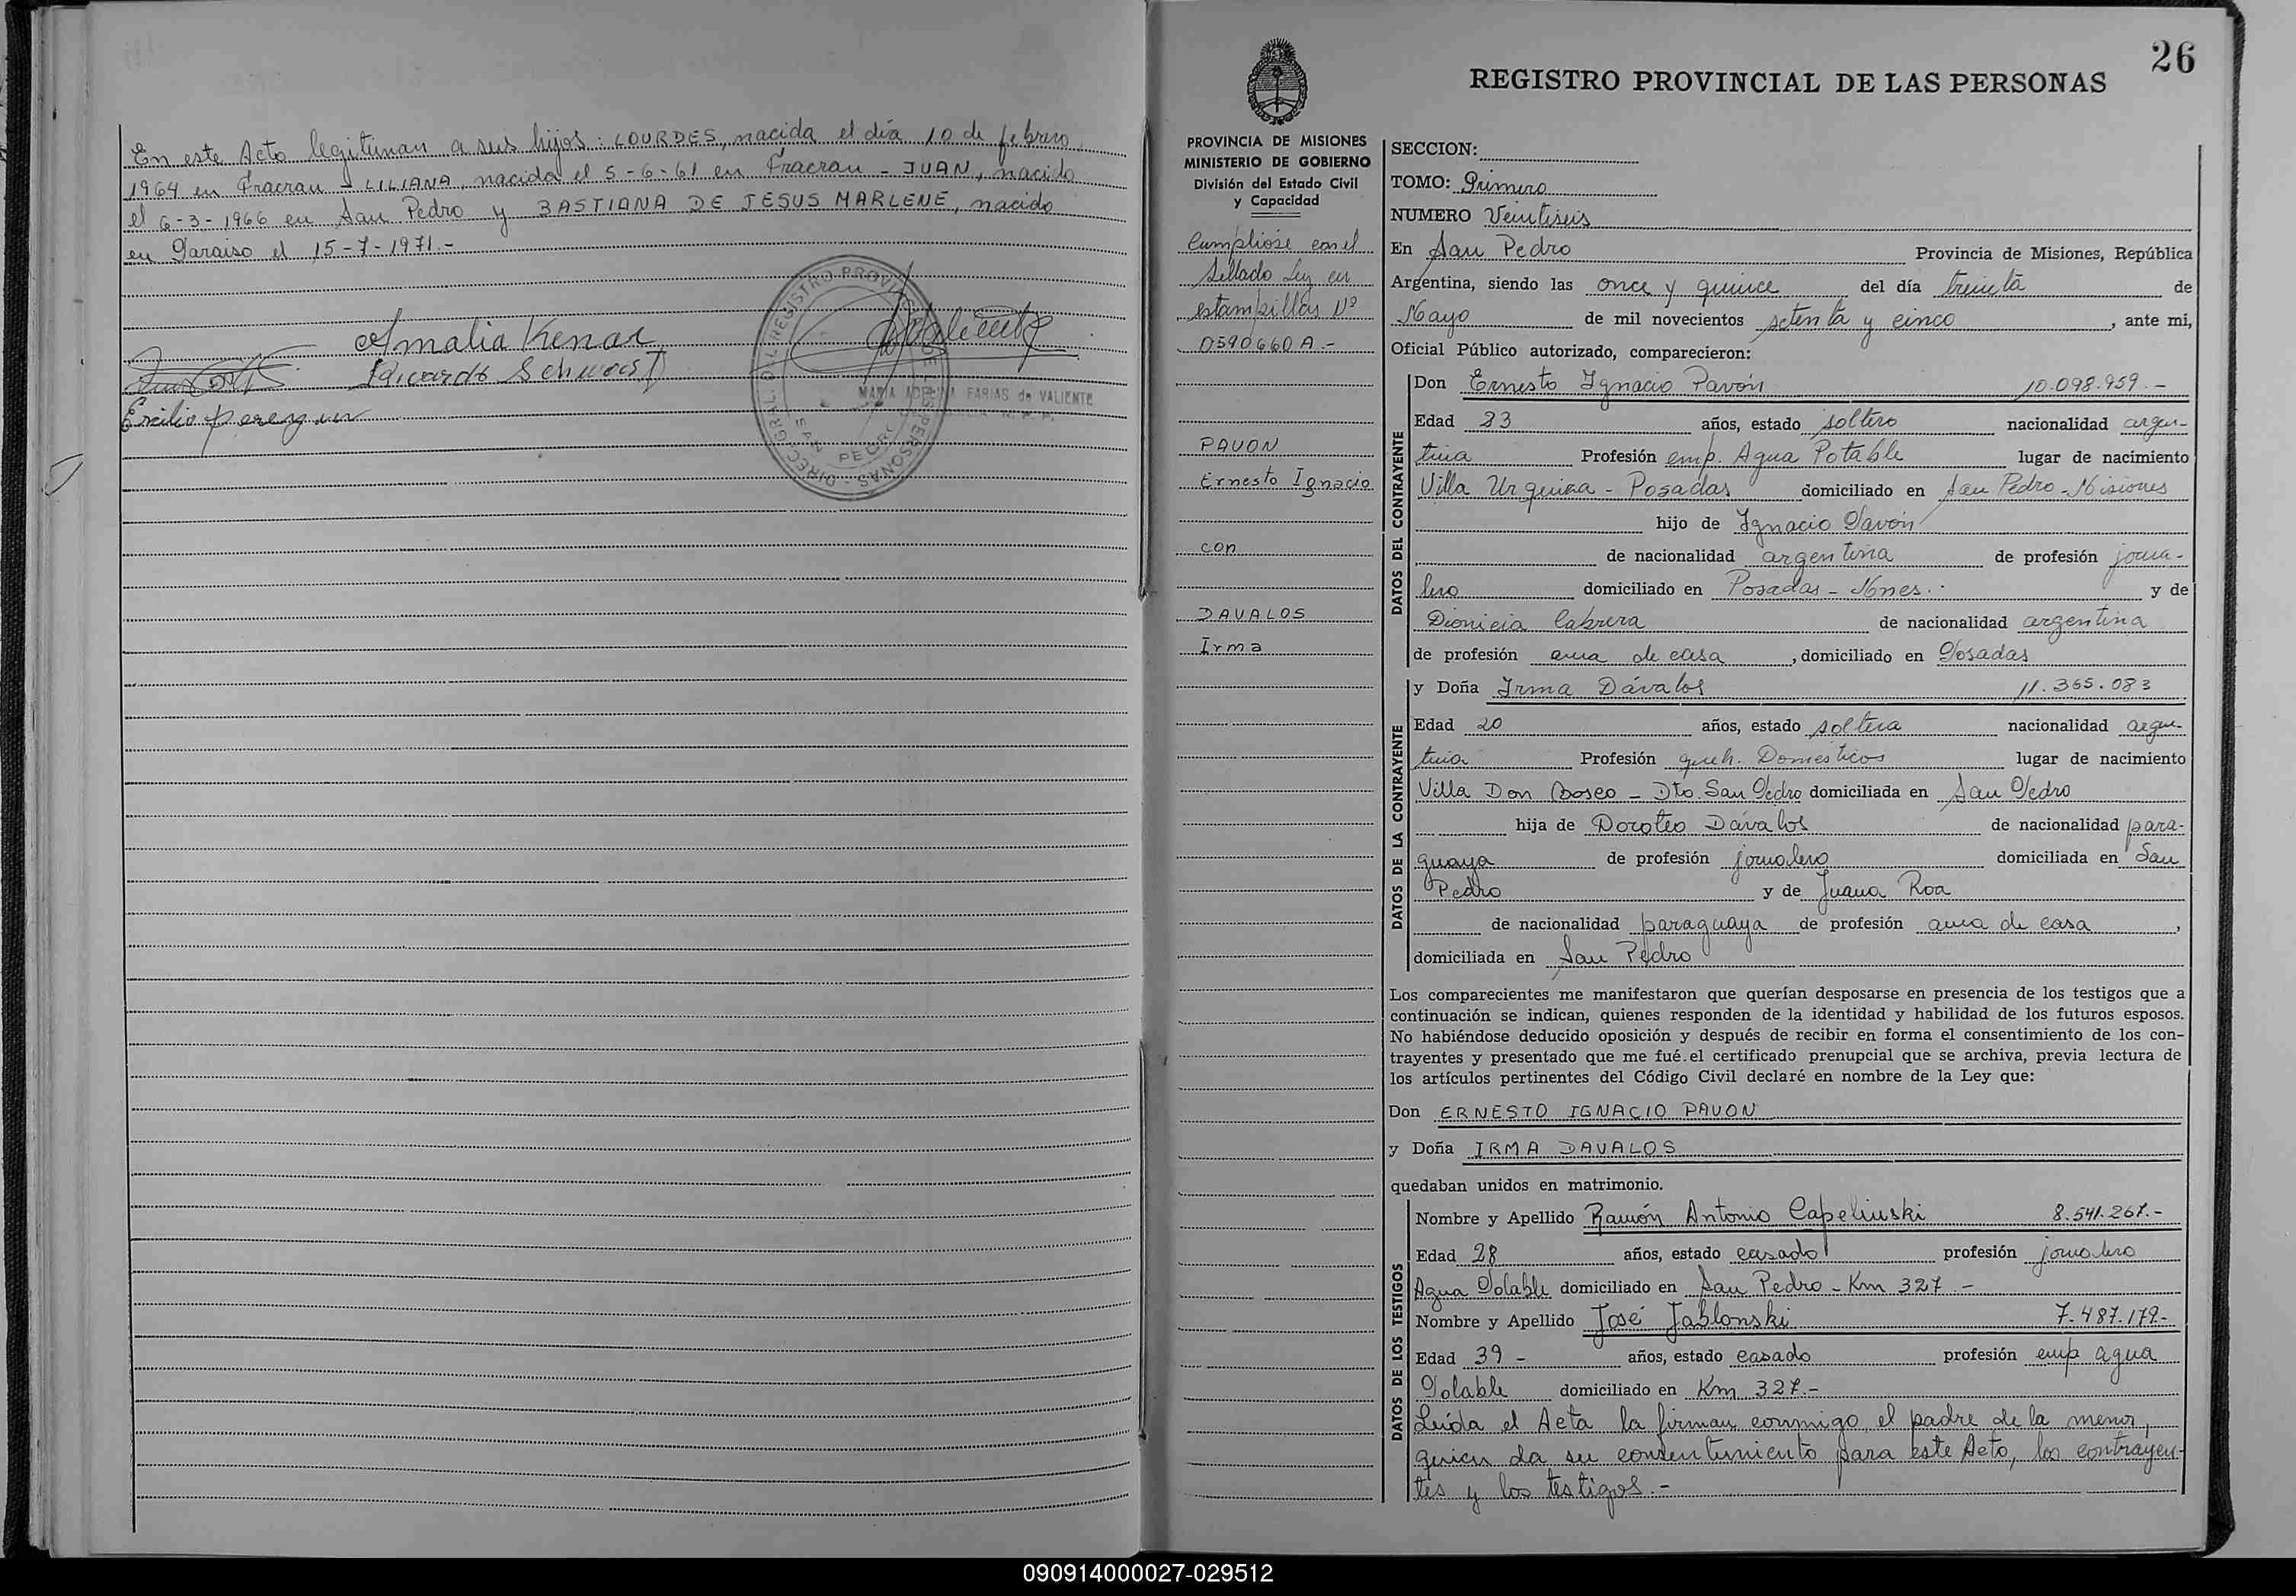 En este Acto legitiman a sus hijos: LOURDES, nacida el día 10 de febrero
1964 en Fracran - LILIANA, nacida el 5-6-61 en Fracran - JUAN, nacido
el 6-3-1966 en San Pedro y BASTIANA DE JESUS MARLENE, nacido
en Paraiso el 15-7-1971.-
Amalia Kenar
Ricardo
Ercilio
DIREC. GRAL. DEL REGISTRO PROVINCIAL DE LAS PERSONAS
SAN PEDRO
MARIA ADELINA FARIAS de VALIENTE
26
REGISTRO PROVINCIAL DE LAS PERSONAS
PROVINCIA DE MISIONES
MINISTERIO DE GOBIERNO
División del Estado Civil
y Capacidad
Cumplióse con el
Sellado Ley en
estampillas Nº
0590660A.-
PAVON
Ernesto Ignacio
con
DAVALOS
Irma
SECCION:
TOMO: Primero
NUMERO Veintiseis
En San Pedro Provincia de Misiones, República
Argentina, siendo las once y quince del día treinta de
Mayo de mil novecientos setenta y cinco, ante mi,
Oficial Público autorizado, comparecieron:
DATOS DEL CONTRAYENTE
Don Ernesto Ignacio Pavón 10.098.959.-
Edad 23 años, estado soltero nacionalidad argen-
tina Profesión emp. Agua Potable lugar de nacimiento
Villa Urquiza - Posadas domiciliado en San Pedro - Misiones
hijo de Ignacio Pavón
de nacionalidad argentina de profesión jorna-
lero domiciliado en Posadas - Mnes. y de
Dionicia Cabrera de nacionalidad argentina
de profesión ama de casa, domiciliado en Posadas
DATOS DE LA CONTRAYENTE
y Doña Irma Dávalos 11.365.083
Edad 20 años, estado soltera nacionalidad argen-
tina Profesión queh. Domesticos lugar de nacimiento
Villa Don Bosco - Dto. San Pedro domiciliada en San Pedro
hija de Doroteo Dávalos de nacionalidad para-
guaya de profesión jornalero domiciliada en San
Pedro y de Juana Roa
de nacionalidad paraguaya de profesión ama de casa,
domiciliada en San Pedro
Los comparecientes me manifestaron que querían desposarse en presencia de los testigos que a
continuación se indican, quienes responden de la identidad y habilidad de los futuros esposos.
No habiéndose deducido oposición y después de recibir en forma el consentimiento de los con-
trayentes y presentado que me fué el certificado prenupcial que se archiva, previa lectura de
los artículos pertinentes del Código Civil declaré en nombre de la Ley que:
Don ERNESTO IGNACIO PAVON
y Doña IRMA DAVALOS
quedaban unidos en matrimonio.
DATOS DE LOS TESTIGOS
Nombre y Apellido Ramón Antonio Capeliuski 8.541.267.-
Edad 28 años, estado casado profesión jornalero
Agua Potable domiciliado en San Pedro - Km 327.-
Nombre y Apellido José Jablonski 7.487.179.-
Edad 39 - años, estado casado profesión emp agua
Potable domiciliado en Km 327.-
Leída el Acta la firman conmigo el padre de la menor,
quien da su consentimiento para este Acto, los contrayen-
tes y los testigos.-
090914000027-029512